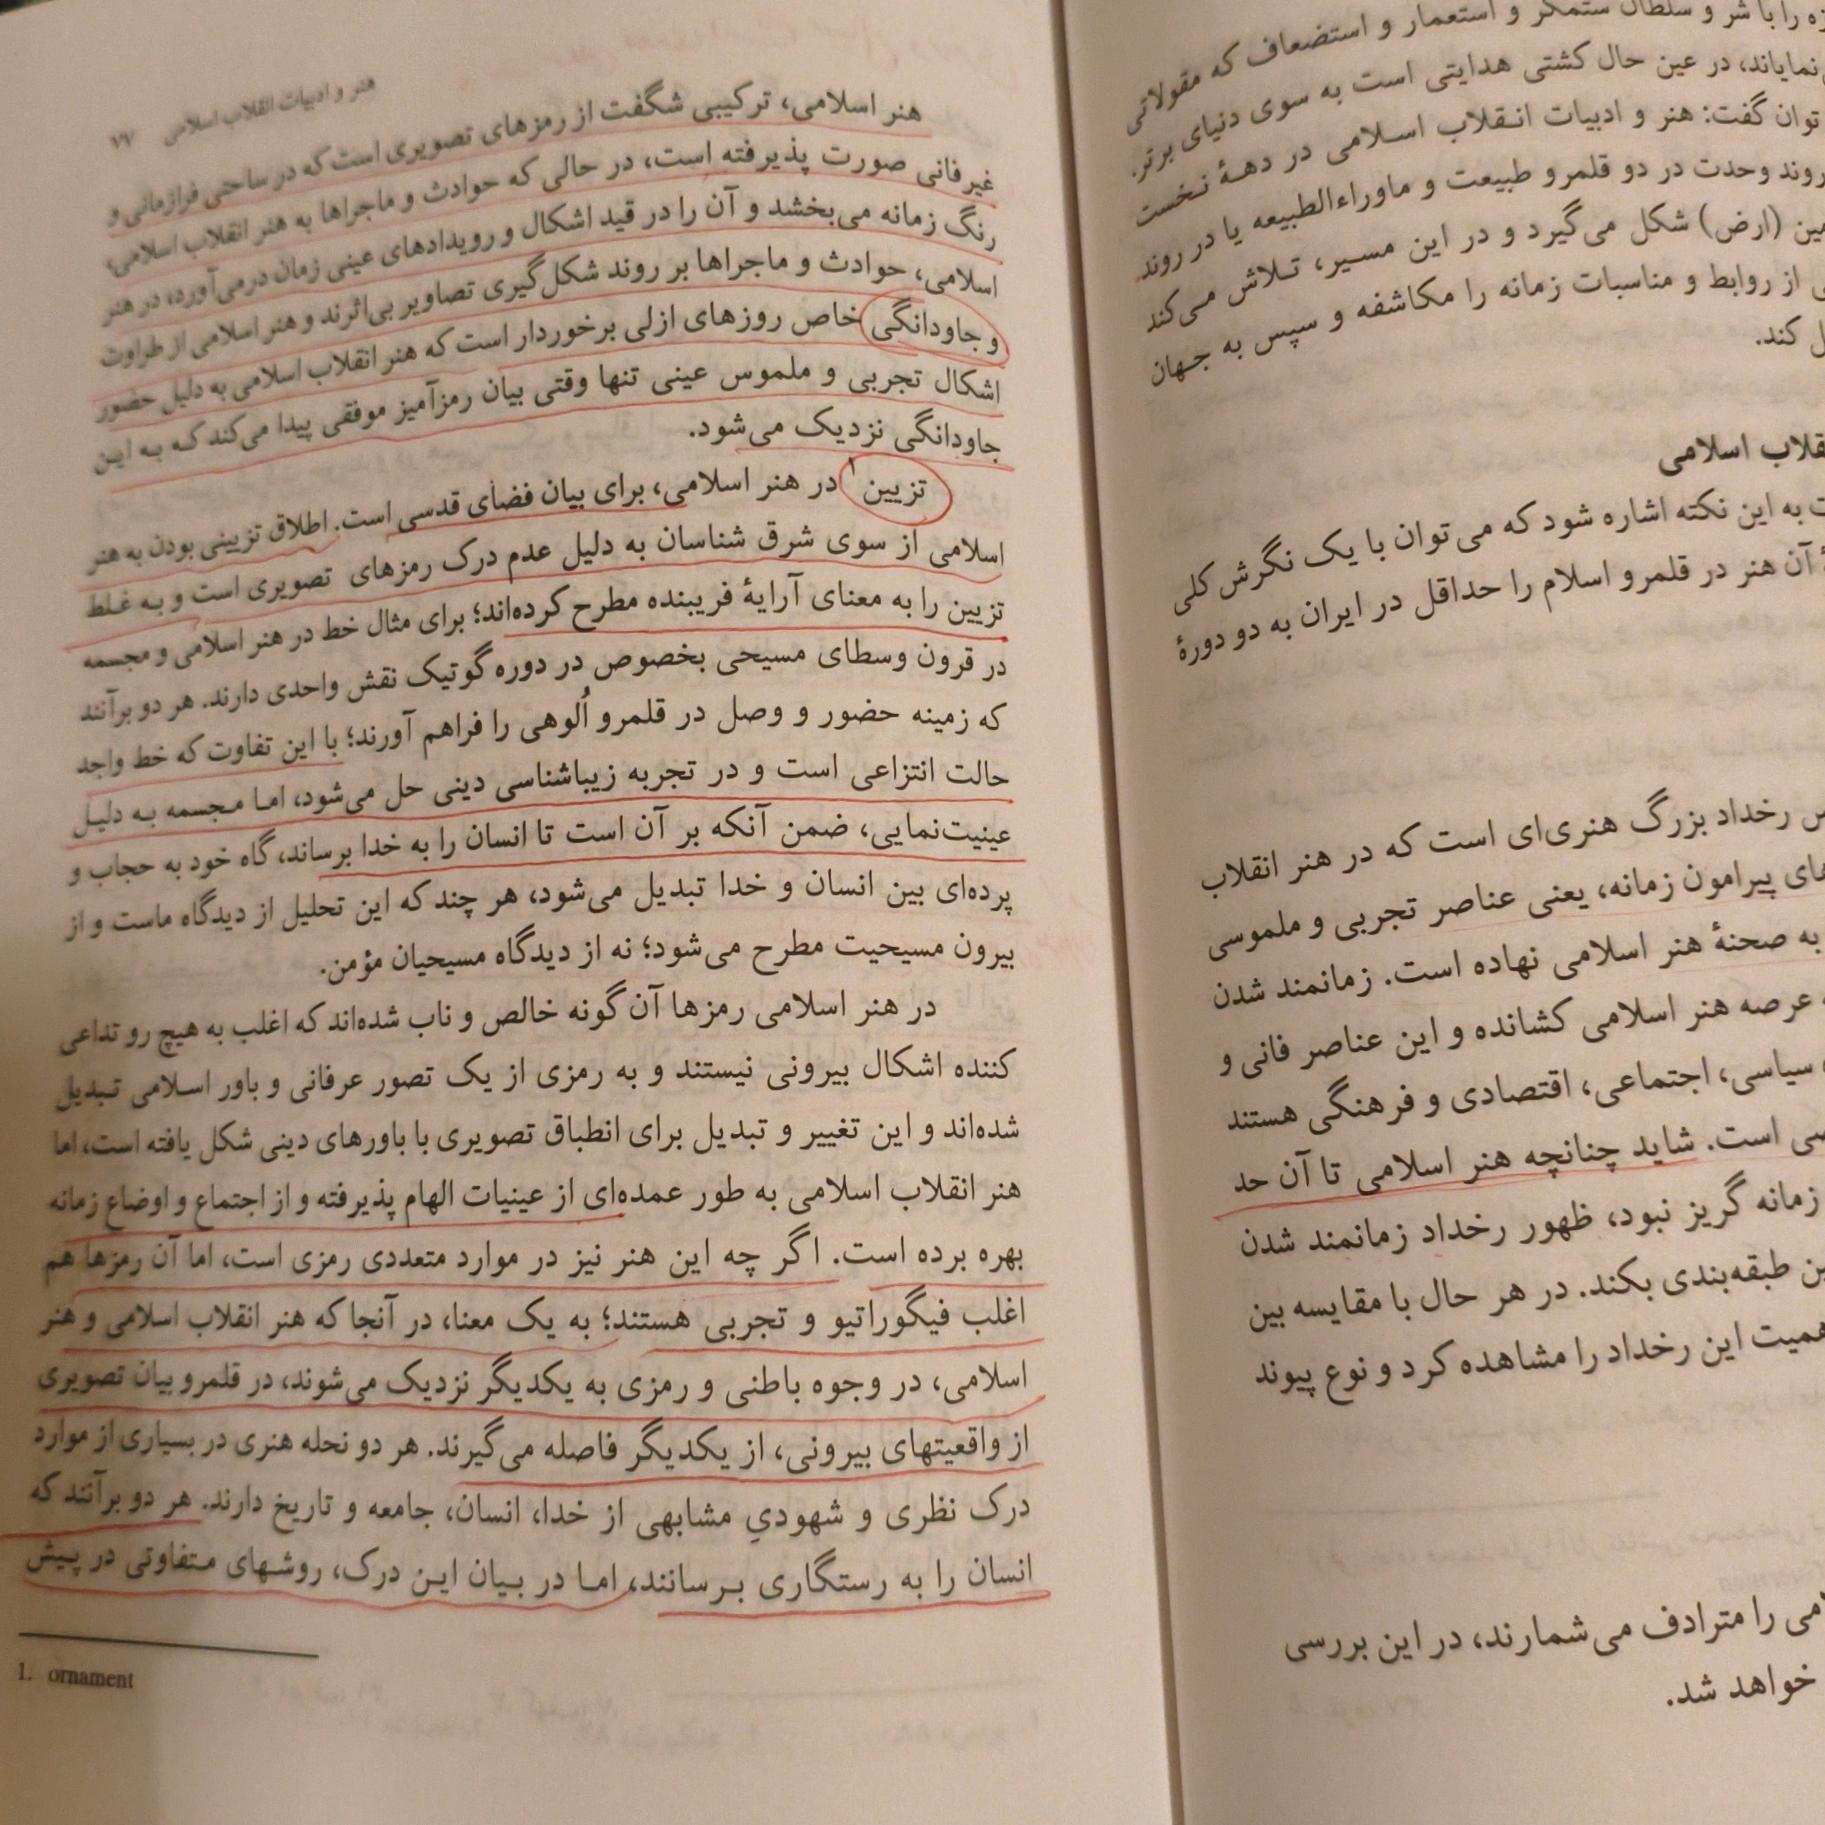 هنر و ادبیات انقلاب اسلامی ۷۷
هنر اسلامی، ترکیبی شگفت از رمزهای تصویری است که در ساحتی فرازمانی و
غیرفانی صورت پذیرفته است، در حالی که حوادث و ماجراها به هنر انقلاب اسلامی،
رنگ زمانه می‌بخشد و آن را در قید اشکال و رویدادهای عینی زمان درمی‌آورد، در هنر
اسلامی، حوادث و ماجراها بر روند شکل‌گیری تصاویر بی‌اثرند و هنر اسلامی از طراوت
و جاودانگی خاص روزهای ازلی برخوردار است که هنر انقلاب اسلامی به دلیل حضور
اشکال تجربی و ملموس عینی تنها وقتی بیان رمزآمیز موفقی پیدا می‌کند که به این
جاودانگی نزدیک می‌شود.
تزیین۱ در هنر اسلامی، برای بیان فضای قدسی است. اطلاق تزیینی بودن به هنر
اسلامی از سوی شرق شناسان به دلیل عدم درک رمزهای تصویری است و به غلط
تزیین را به معنای آرایهٔ فریبنده مطرح کرده‌اند؛ برای مثال خط در هنر اسلامی و مجسمه
در قرون وسطای مسیحی بخصوص در دوره گوتیک نقش واحدی دارند. هر دو برآنند
که زمینه حضور و وصل در قلمرو اُلوهی را فراهم آورند؛ با این تفاوت که خط واجد
حالت انتزاعی است و در تجربه زیباشناسی دینی حل می‌شود، اما مجسمه به دلیل
عینیت‌نمایی، ضمن آنکه بر آن است تا انسان را به خدا برساند، گاه خود به حجاب و
پرده‌ای بین انسان و خدا تبدیل می‌شود، هر چند که این تحلیل از دیدگاه ماست و از
بیرون مسیحیت مطرح می‌شود؛ نه از دیدگاه مسیحیان مؤمن.
در هنر اسلامی رمزها آن گونه خالص و ناب شده‌اند که اغلب به هیچ رو تداعی
کننده اشکال بیرونی نیستند و به رمزی از یک تصور عرفانی و باور اسلامی تبدیل
شده‌اند و این تغییر و تبدیل برای انطباق تصویری با باورهای دینی شکل یافته است، اما
هنر انقلاب اسلامی به طور عمده‌ای از عینیات الهام پذیرفته و از اجتماع و اوضاع زمانه
بهره برده است. اگر چه این هنر نیز در موارد متعددی رمزی است، اما آن رمزها هم
اغلب فیگوراتیو و تجربی هستند؛ به یک معنا، در آنجا که هنر انقلاب اسلامی و هنر
اسلامی، در وجوه باطنی و رمزی به یکدیگر نزدیک می‌شوند، در قلمرو بیان تصویری
از واقعیتهای بیرونی، از یکدیگر فاصله می‌گیرند. هر دو نحله هنری در بسیاری از موارد
درک نظری و شهودیِ مشابهی از خدا، انسان، جامعه و تاریخ دارند. هر دو برآنند که
انسان را به رستگاری برسانند، اما در بیان این درک، روشهای متفاوتی در پیش
1. ornament
را با شر و سلطان ستمگر و استعمار و استضعاف که مقولاتی
نمایاند، در عین حال کشتی هدایتی است به سوی دنیای برتر.
توان گفت: هنر و ادبیات انقلاب اسلامی در دههٔ نخست
روند وحدت در دو قلمرو طبیعت و ماوراءالطبیعه یا در روند
(ارض) شکل می‌گیرد و در این مسیر، تلاش می‌کند
از روابط و مناسبات زمانه را مکاشفه و سپس به جهان
کند.
اسلامی
به این نکته اشاره شود که می‌توان با یک نگرش کلی
آن هنر در قلمرو اسلام را حداقل در ایران به دو دورهٔ
رخداد بزرگ هنری‌ای است که در هنر انقلاب
پیرامون زمانه، یعنی عناصر تجربی و ملموسی
به صحنهٔ هنر اسلامی نهاده است. زمانمند شدن
عرصه هنر اسلامی کشانده و این عناصر فانی و
سیاسی، اجتماعی، اقتصادی و فرهنگی هستند
است. شاید چنانچه هنر اسلامی تا آن حد
زمانه گریز نبود، ظهور رخداد زمانمند شدن
طبقه‌بندی بکند. در هر حال با مقایسه بین
همیت این رخداد را مشاهده کرد و نوع پیوند
را مترادف می‌شمارند، در این بررسی
خواهد شد.